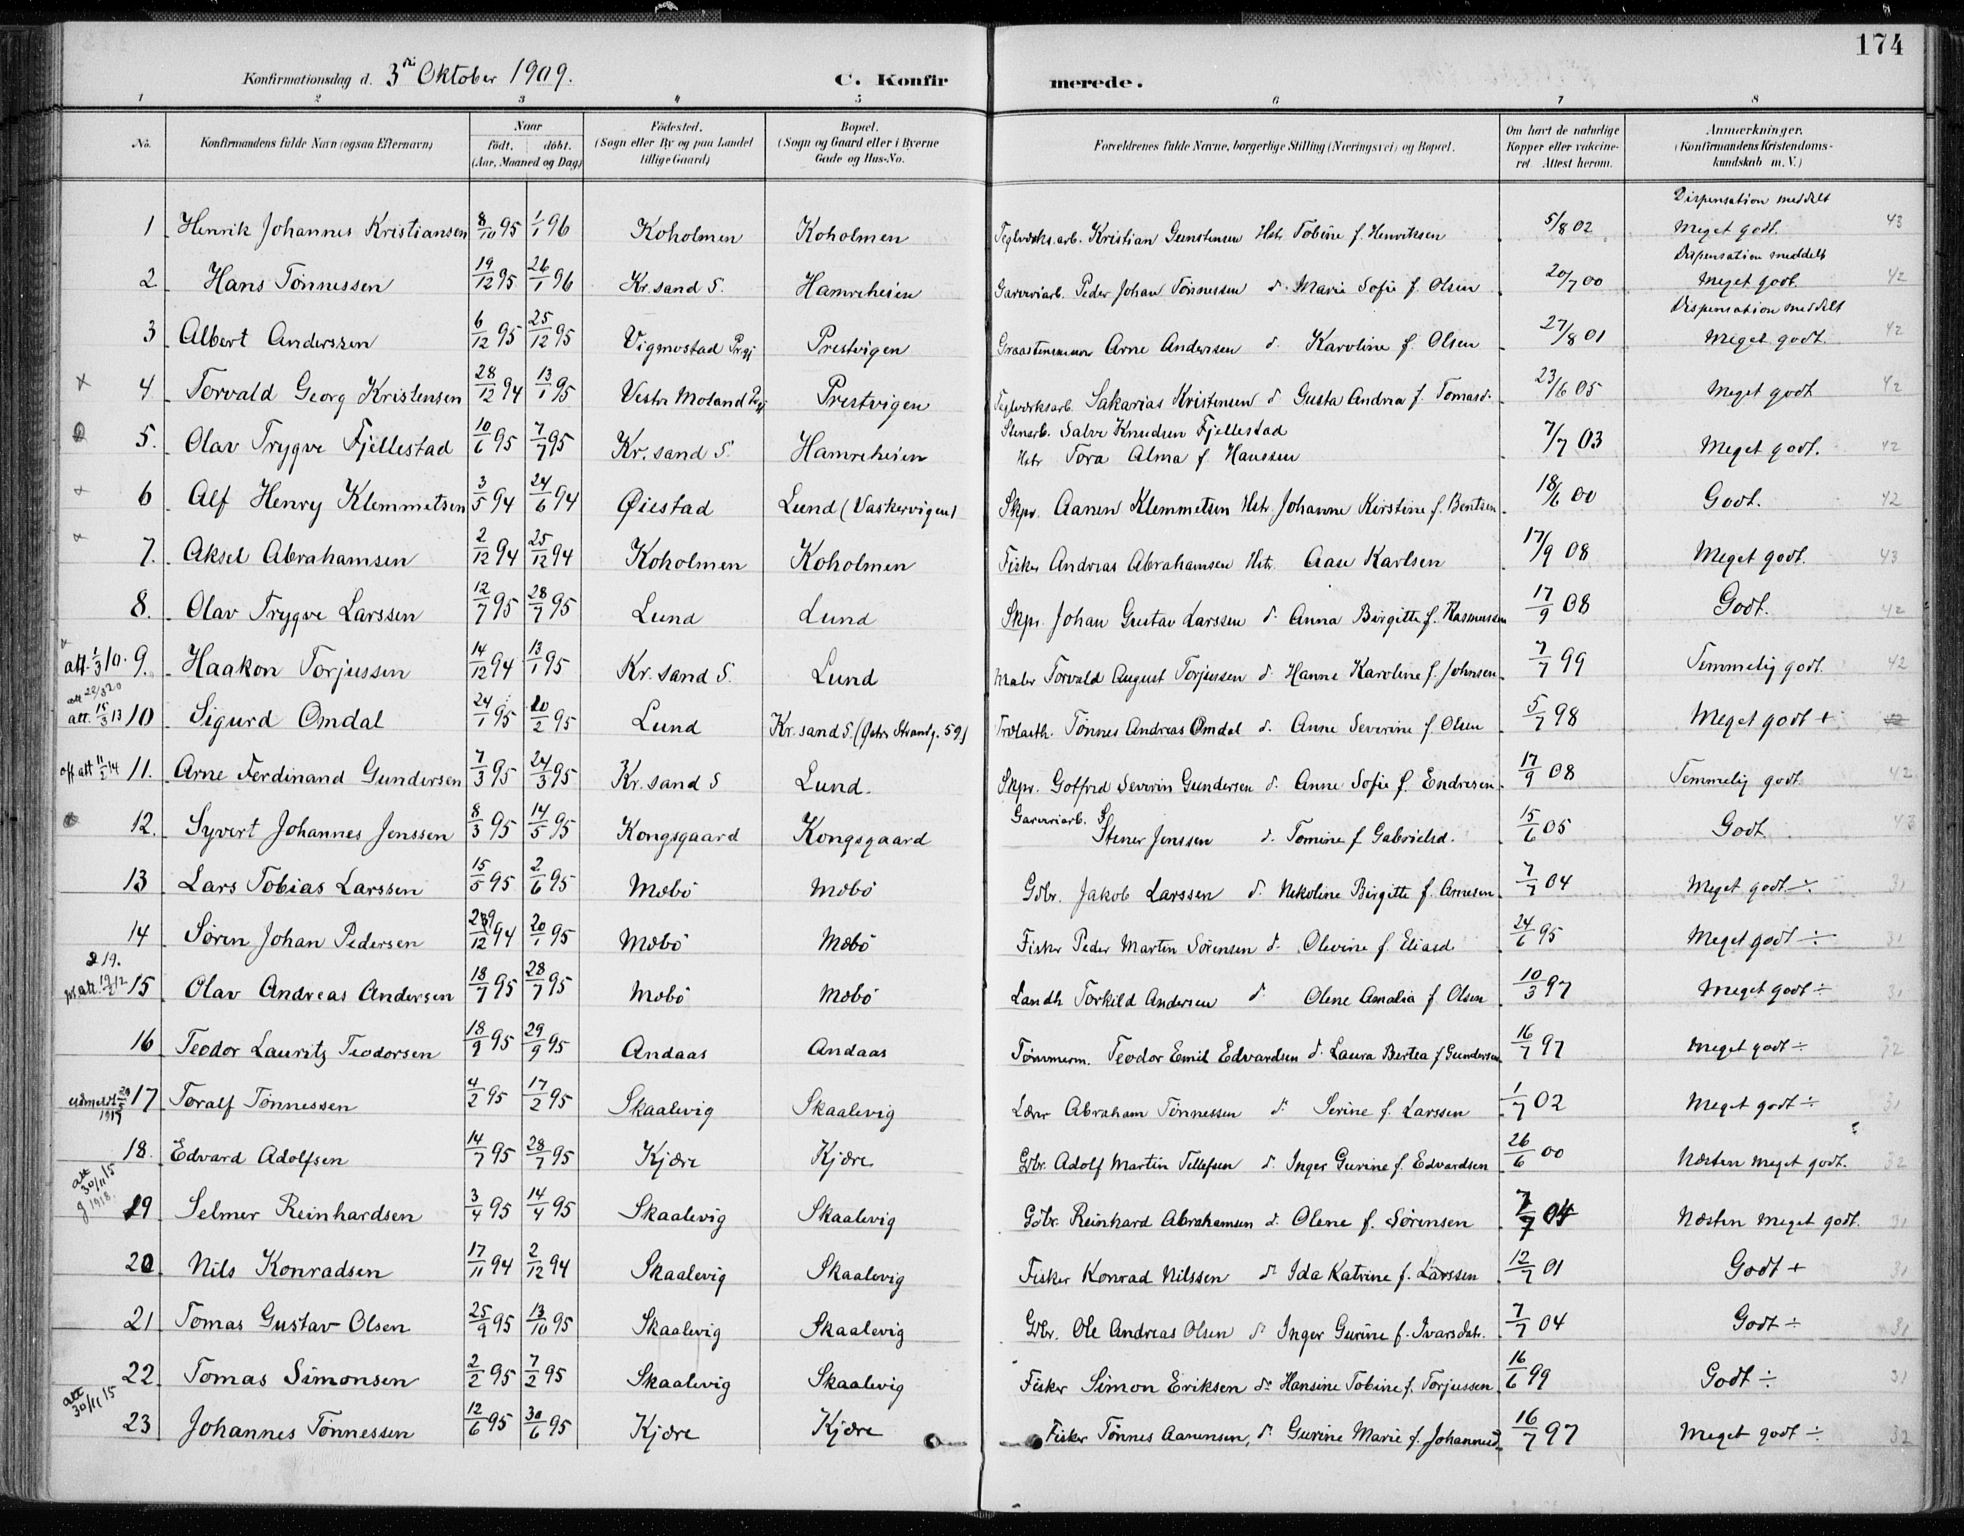 174
Konfirmationsdag d. 3die Oktober 1909. C. Konfirmerede.
1 2 3 4 5 6 7 8
No. Konfirmandens fulde Navn (ogsaa Efternavn) Naar født. døbt. (Aar, Maaned og Dag) Fødested. (Sogn eller By og paa Landet tillige Gaard) Bopæl. (Sogn og Gaard eller i Byerne Gade og Hus-No. Forældrenes fulde Navne, borgerlige Stilling (Næringsvei) og Bopæl. Om havt de naturlige Kopper eller vaccineret. Attest herom. Anmærkninger. (Konfirmandens Kristendomskundskab m. V.)
1 Henrik Johannes Kristiansen 8/10 95 1/1 96 Koholmen Koholmen Teglværks.arb. Kristian Gunstensen Hstr Tobine f. Henriksen 5/8 02 Dispensation meddelt Meget godt. 43
2 Hans Tønnessen 19/12 95 26/1 96 Kr.sand S. Hamreheien Garveriarb. Peder Johan Tønnessen d. Marie Sofie f. Olsen 20/7 00 Dispensation meddelt Meget godt. 42
3 Albert Anderssen 6/12 95 25/12 95 Vigmostad Prgj Prestvigen Graastensmurer Arne Andersen d. Karoline f. Olsen 27/8 01 Dispensation meddelt Meget godt. 42
x 4 Torvald Georg Kristensen 28/12 94 13/1 95 Vestre Moland Prgj Prestvigen Teglværksarb. Sakarias Kristensen d. Gusta Andrea f. Tomasd. 23/6 05 Meget godt 42
5. Olav Trygve Fjellestad 10/6 95 7/7 95 Kr.sand S. Hamreheien Stenarb. Salve Knudsen Fjellestad Hstr Tora Alma f. Hanssen 7/7 03 Meget godt. 42
x 6 Alf Henry Klemmetsen 3/5 94 24/6 94 Øiestad Lund (Vaskervigen) Skpr. Aanen Klemmetsen Hstr. Johanne Kirstine f. Bentsen 18/6 00 Godt. 42
x 7. Aksel Abrahamsen 2/12 94 25/12 94 Koholmen Koholmen Fisker Andreas Abrahamsen Hstr. Aase Karlsen 17/9 08 Meget godt. 43
8. Olav Trygve Larssen 12/7 95 28/7 95 Lund Lund Skpr. Johan Gustav Larssen d. Anna Birgitte f. Rasmussen 17/9 08 Godt. 42
att. 1/3 10. 9. Haakon Torjussen 14/12 94 13/1 95 Kr.sand S. Lund Maler Torvald August Torjussen d. Hanne Karoline f. Johnsen 7/7 99 Temmelig godt. 42
att 22/3 20 att. 15/3 13 10 Sigurd Omdal 24/1 95 20/2 95 Lund Kr.sand S. (Østre Strandg. 59) Tømmerm. Tønnes Andreas Omdal d. Anne Severine f. Olsen 5/7 98 Meget godt +
att 11/5 14 11. Arne Ferdinand Gundersen 7/3 95 24/3 95 Kr.sand S Lund. Skpr. Gotfred Severin Gundersen d. Anne Sofie f. Endresen 17/9 08 Temmelig godt. 42
12. Syvert Johannes Jenssen 8/3 95 14/5 95 Kongsgaard Kongsgaard Garveriarb. Stener Jenssen d. Tomine f Gabrielsd. 15/6 05 Godt. 43
13 Lars Tobias Larssen 15/5 95 2/6 95 Mæbø Mæbø Gdbr. Jakob Larssen d. Nikoline Birgitte f. Arnesen 7/7 04 Meget godt ÷ 31
14 Søren Johan Pedersen 29/12 94 20/1 95 Mæbø Mæbø Fisker Peder Martin Sørensen d. Olevine f. Eliasd 24/6 95 Meget godt ÷ 31
19. att. 19/2 12 15 Olav Andreas Andersen 18/7 95 28/7 95 Mæbø Mæbø Landh. Torkild Andersen d. Olene Amalia f Olsen 10/3 97 Meget godt ÷ 31
16 Teodor Lauritz Teodorsen 18/9 95 29/9 95 Andaas Andaas Tømmerm. Teodor Emil Edvardsen d. Laura Bertea f Gundersen 16/7 97 Meget godt ÷ 32
udmeldt 1919 17 Toralf Tønnessen 4/2 95 17/2 95 Skaalevig Skaalevig Lærer Abraham Tønnessen d. Serine f. Larssen 1/7 02 Meget godt ÷ 31
18. Edvard Adolfsen 14/7 95 28/7 95 Kjære Kjære Gdbr. Adolf Martin Tellefsen d. Inger Gurine f. Edvardsen 26/6 00 Næsten meget godt. 32
att 30/11 15 g 1918. 19 Selmer Reinhardsen 3/4 95 14/4 95 Skaalevig Skaalevig Gdbr. Reinhard Abrahamsen d. Olene f. Sørensen 7/7 04 Næsten meget godt. 31
20 Nils Konradsen 17/11 94 2/12 94 Skaalevig Skaalevig Fisker Konrad Nilssen d. Ida Katrine f. Larssen 12/7 01 Godt + 31
21 Tomas Gustav Olsen 25/9 95 13/10 95 Skaalevig Skaalevig Gdbr. Ole Andreas Olsen d. Inger Gurine f. Ivarsdtr. 7/7 04 Godt ÷ 31
22 Tomas Simonsen 2/2 95 7/2 95 Skaalevig Skaalevig Fisker Simon Eriksen d. Hansine Tobine f. Torjussen 16/6 99 Godt ÷ 31
att 30/11 15 23 Johannes Tønnessen 12/6 95 30/6 95 Kjære Kjære Fisker Tønnes Aanensen, d. Gurine Marie f. Johannesd. 16/7 97 Meget godt ÷ 32